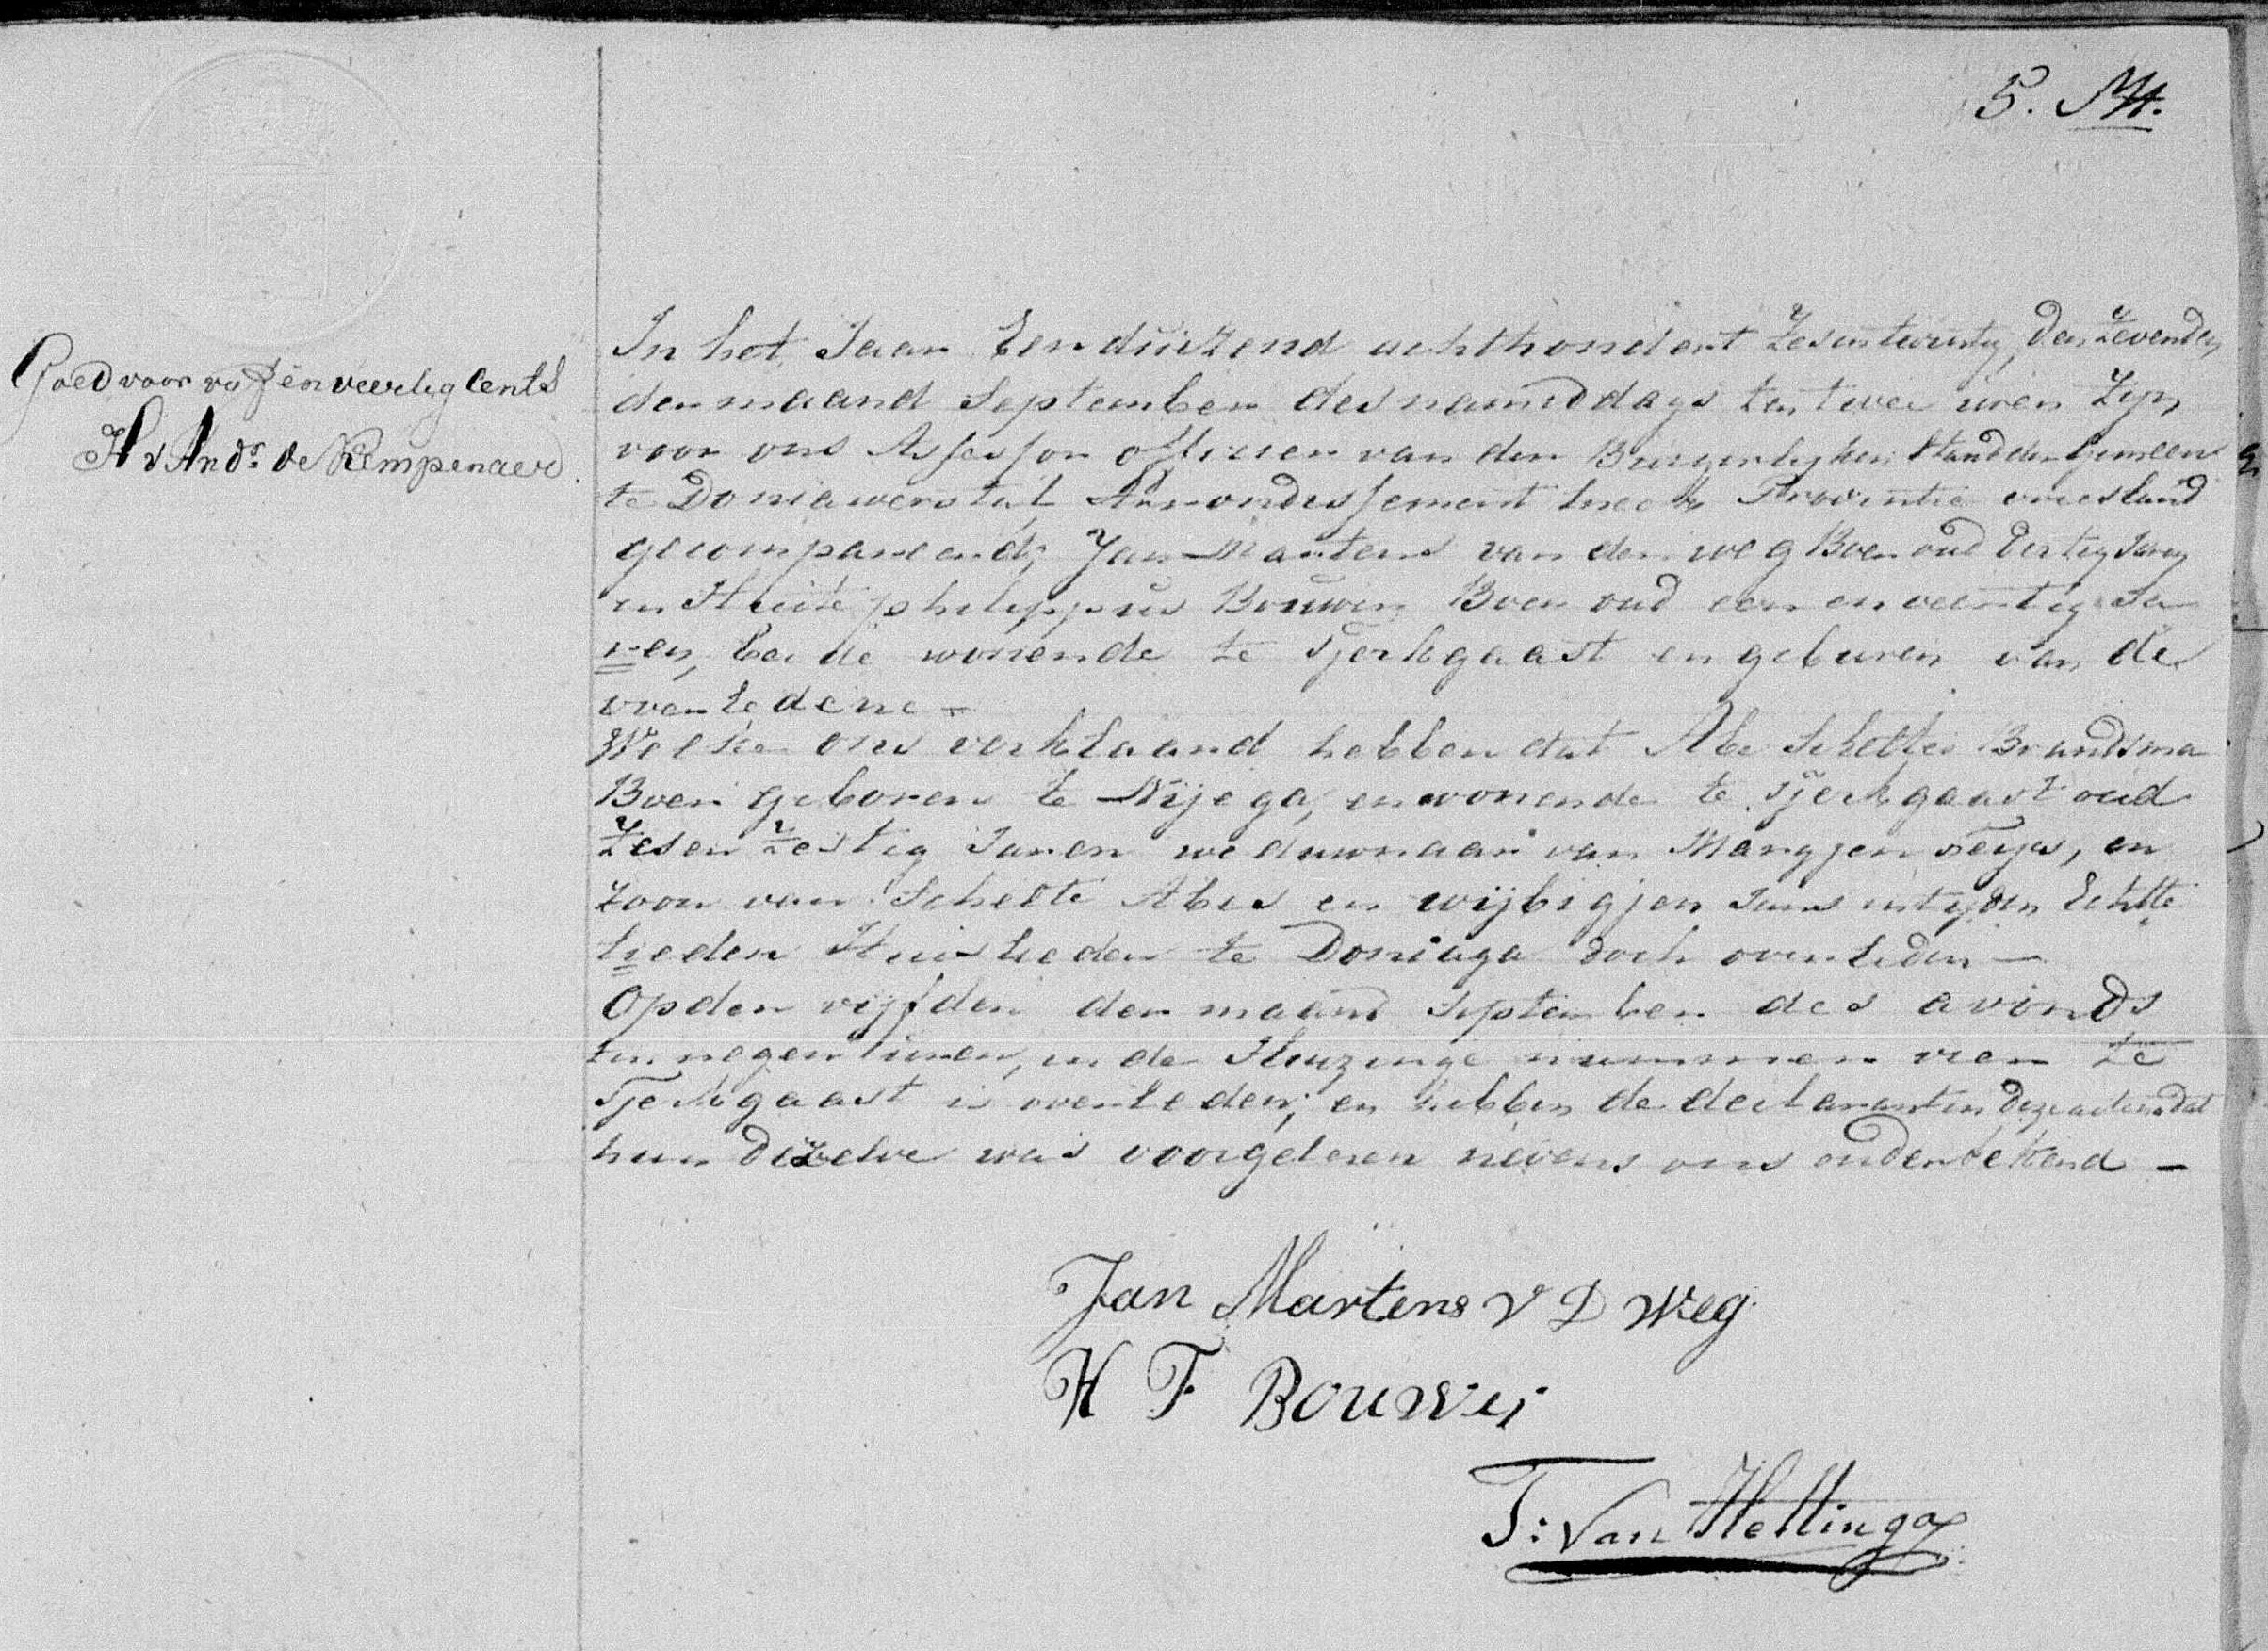 5.
In het Jaar Eenduizend achthondert Zesentwintig, den Zevenden
der maand September des namiddags ten twee uren Zijn
voor ons Assessor officier van den Burgerlijken Stand der Gemeen
te Doniawerstal Arrondissement Sneek Provintie vriesland
gecompareerd; Jan Martens van der weg Boer oud dertig Jaren
en Huite philippus Bouwer Boer oud een en veertig Ja
ren, beide wonende te Tjerkgaast en geburen van de
overledene -
Welke ons verklaard hebben dat Abe Scheltes Brandsma
Boer geboren te Nijega, en wonende te Tjerkgaast oud
Zesen Zestig Jaren weduwnaar van Mangjen Feijes, en
zoon van Schelte Abes en wijbigjen Jans in tijden Echte
lieden Huislieden te Doniaga doch overleden —
Op den vijfden der maand September des avonds
ten negen uuren, in de Huizinge nummer vier te
Tjerkgaast is overleden; en hebben de declaranten deze acte nadat
hun dezelve was voorgelesen nevens ons ondertekend -
Goed voor vijf en veertig Cents
de Kempenaer
Jan Martens V D Weg
H F Bouwer
T: Van Hettinga